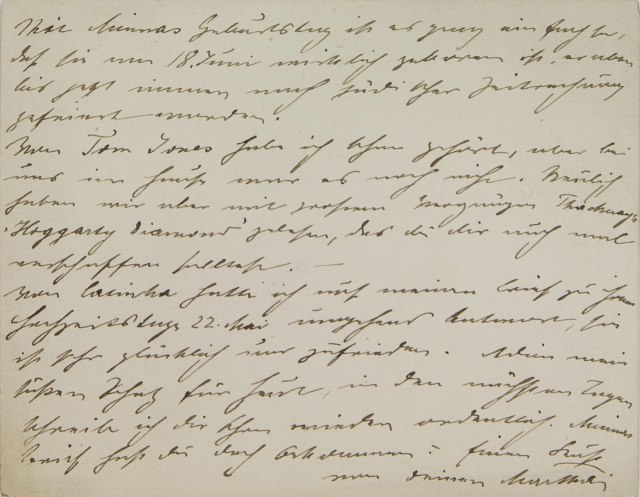 Mit Minnas Geburtstag ist es ganz einfach so,
daß sie am 18. Juni wirklich geboren ist, er aber
bis jetzt immer nach jüdischer Zeitrechnung
gefeiert wurde.
Von Tom Jones habe ich schon gehört, aber bei
uns im Hause war es noch nicht. Neulich
haben wir aber mit großem Vergnügen Thackerays
"Hoggarty Diamond" gelesen, das du dir auch mal
verschaffen solltest. —
Von hatte ich auf meinen Brief zu ihrem
Hochzeitstage 22. Mai umgehend Antwort, sie
ist sehr glücklich und zufrieden. Adieu mein
süßer Schatz für heut, in den nächsten Tagen
schreibe ich dir schon wieder ordentlich. Minnas
Brief hast du doch bekommen? Einen Kuß
von deiner Martha